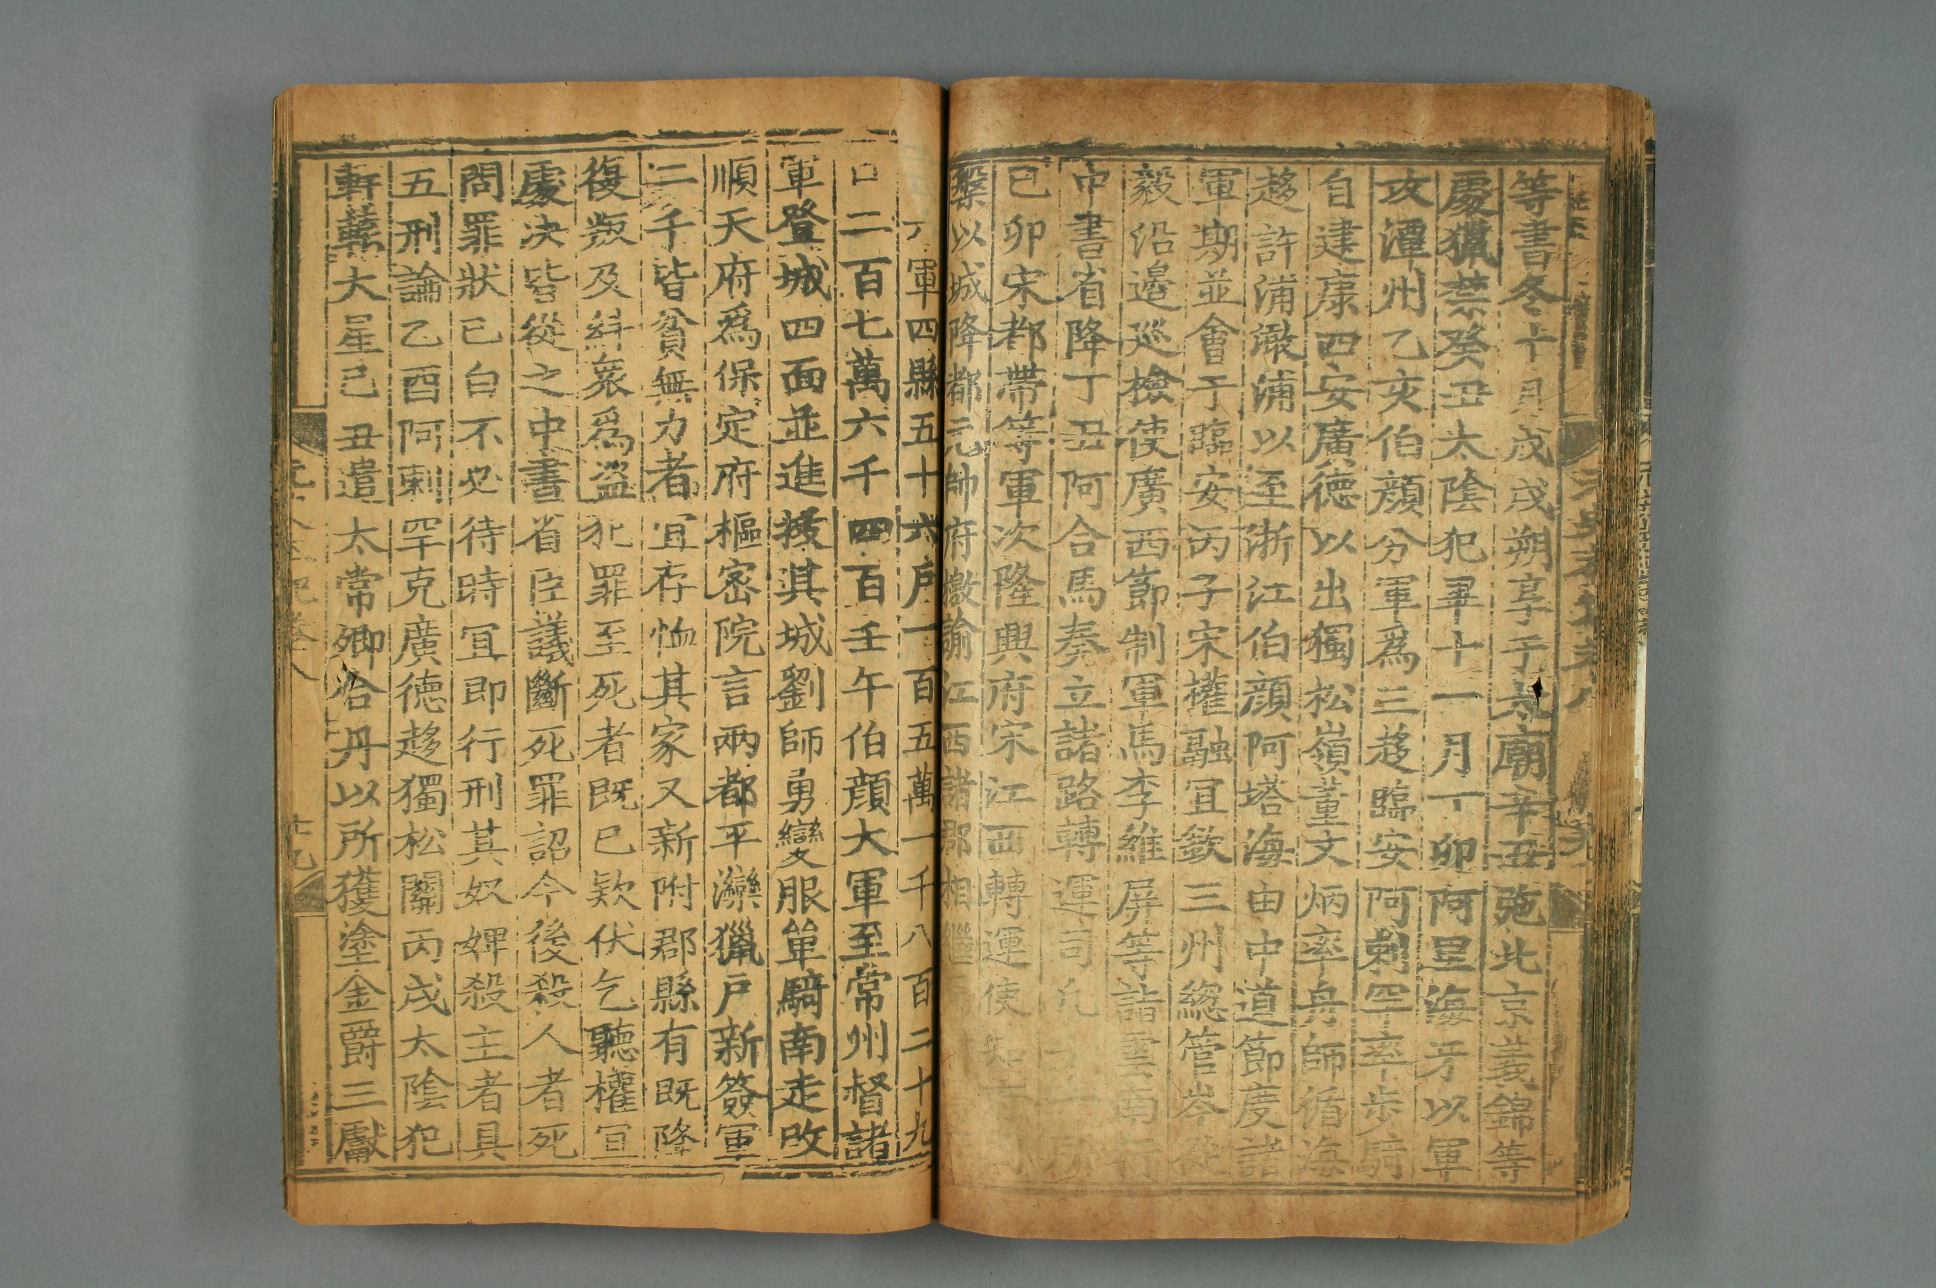 元史本紀卷八
等書冬十月戊戌朔享于太廟辛丑弛北京義錦等
處獵禁癸丑太陰犯畢十一月丁卯阿里海牙以軍
攻潭州乙亥伯顔分軍爲三趍臨安阿剌罕率步騎
自建康四安廣德以出獨松嶺董文炳率舟師循海
趍許浦澉浦以至浙江伯顔阿塔海由中道節度諸
軍期並會于臨安丙子宋權融宜欽三州總管岑從
毅沿邊巡檢使廣西節制軍馬李維屏等詣雲南行
中書省降丁丑阿合馬奏立諸路轉運司凡十一所
己卯宋都帶等軍次隆興府宋江西轉運使知府
槃以城降都元帥府檄諭江西諸郡相繼
六軍四縣五十六戶一百五萬一千八百二十九
口二百七萬六千四百壬午伯顔大軍至常州督諸
軍登城四面並進拔其城劉師勇變服單騎南走改
順天府爲保定府樞密院言兩都平灤獵戶新簽軍
二千皆貧無力者宜存恤其家又新附郡縣有既降
復叛及糾衆爲盜犯罪至死者既已款伏乞聽權宜
處決皆從之中書省臣議斷死罪詔今後殺人者死
問罪狀已白不必待時宜即行刑其奴婢殺主者具
五刑論乙酉阿剌罕克廣德趍獨松關丙戌太陰犯
軒轅大星己丑遣太常卿合丹以所獲塗金爵三獻
元史本紀卷八 十九